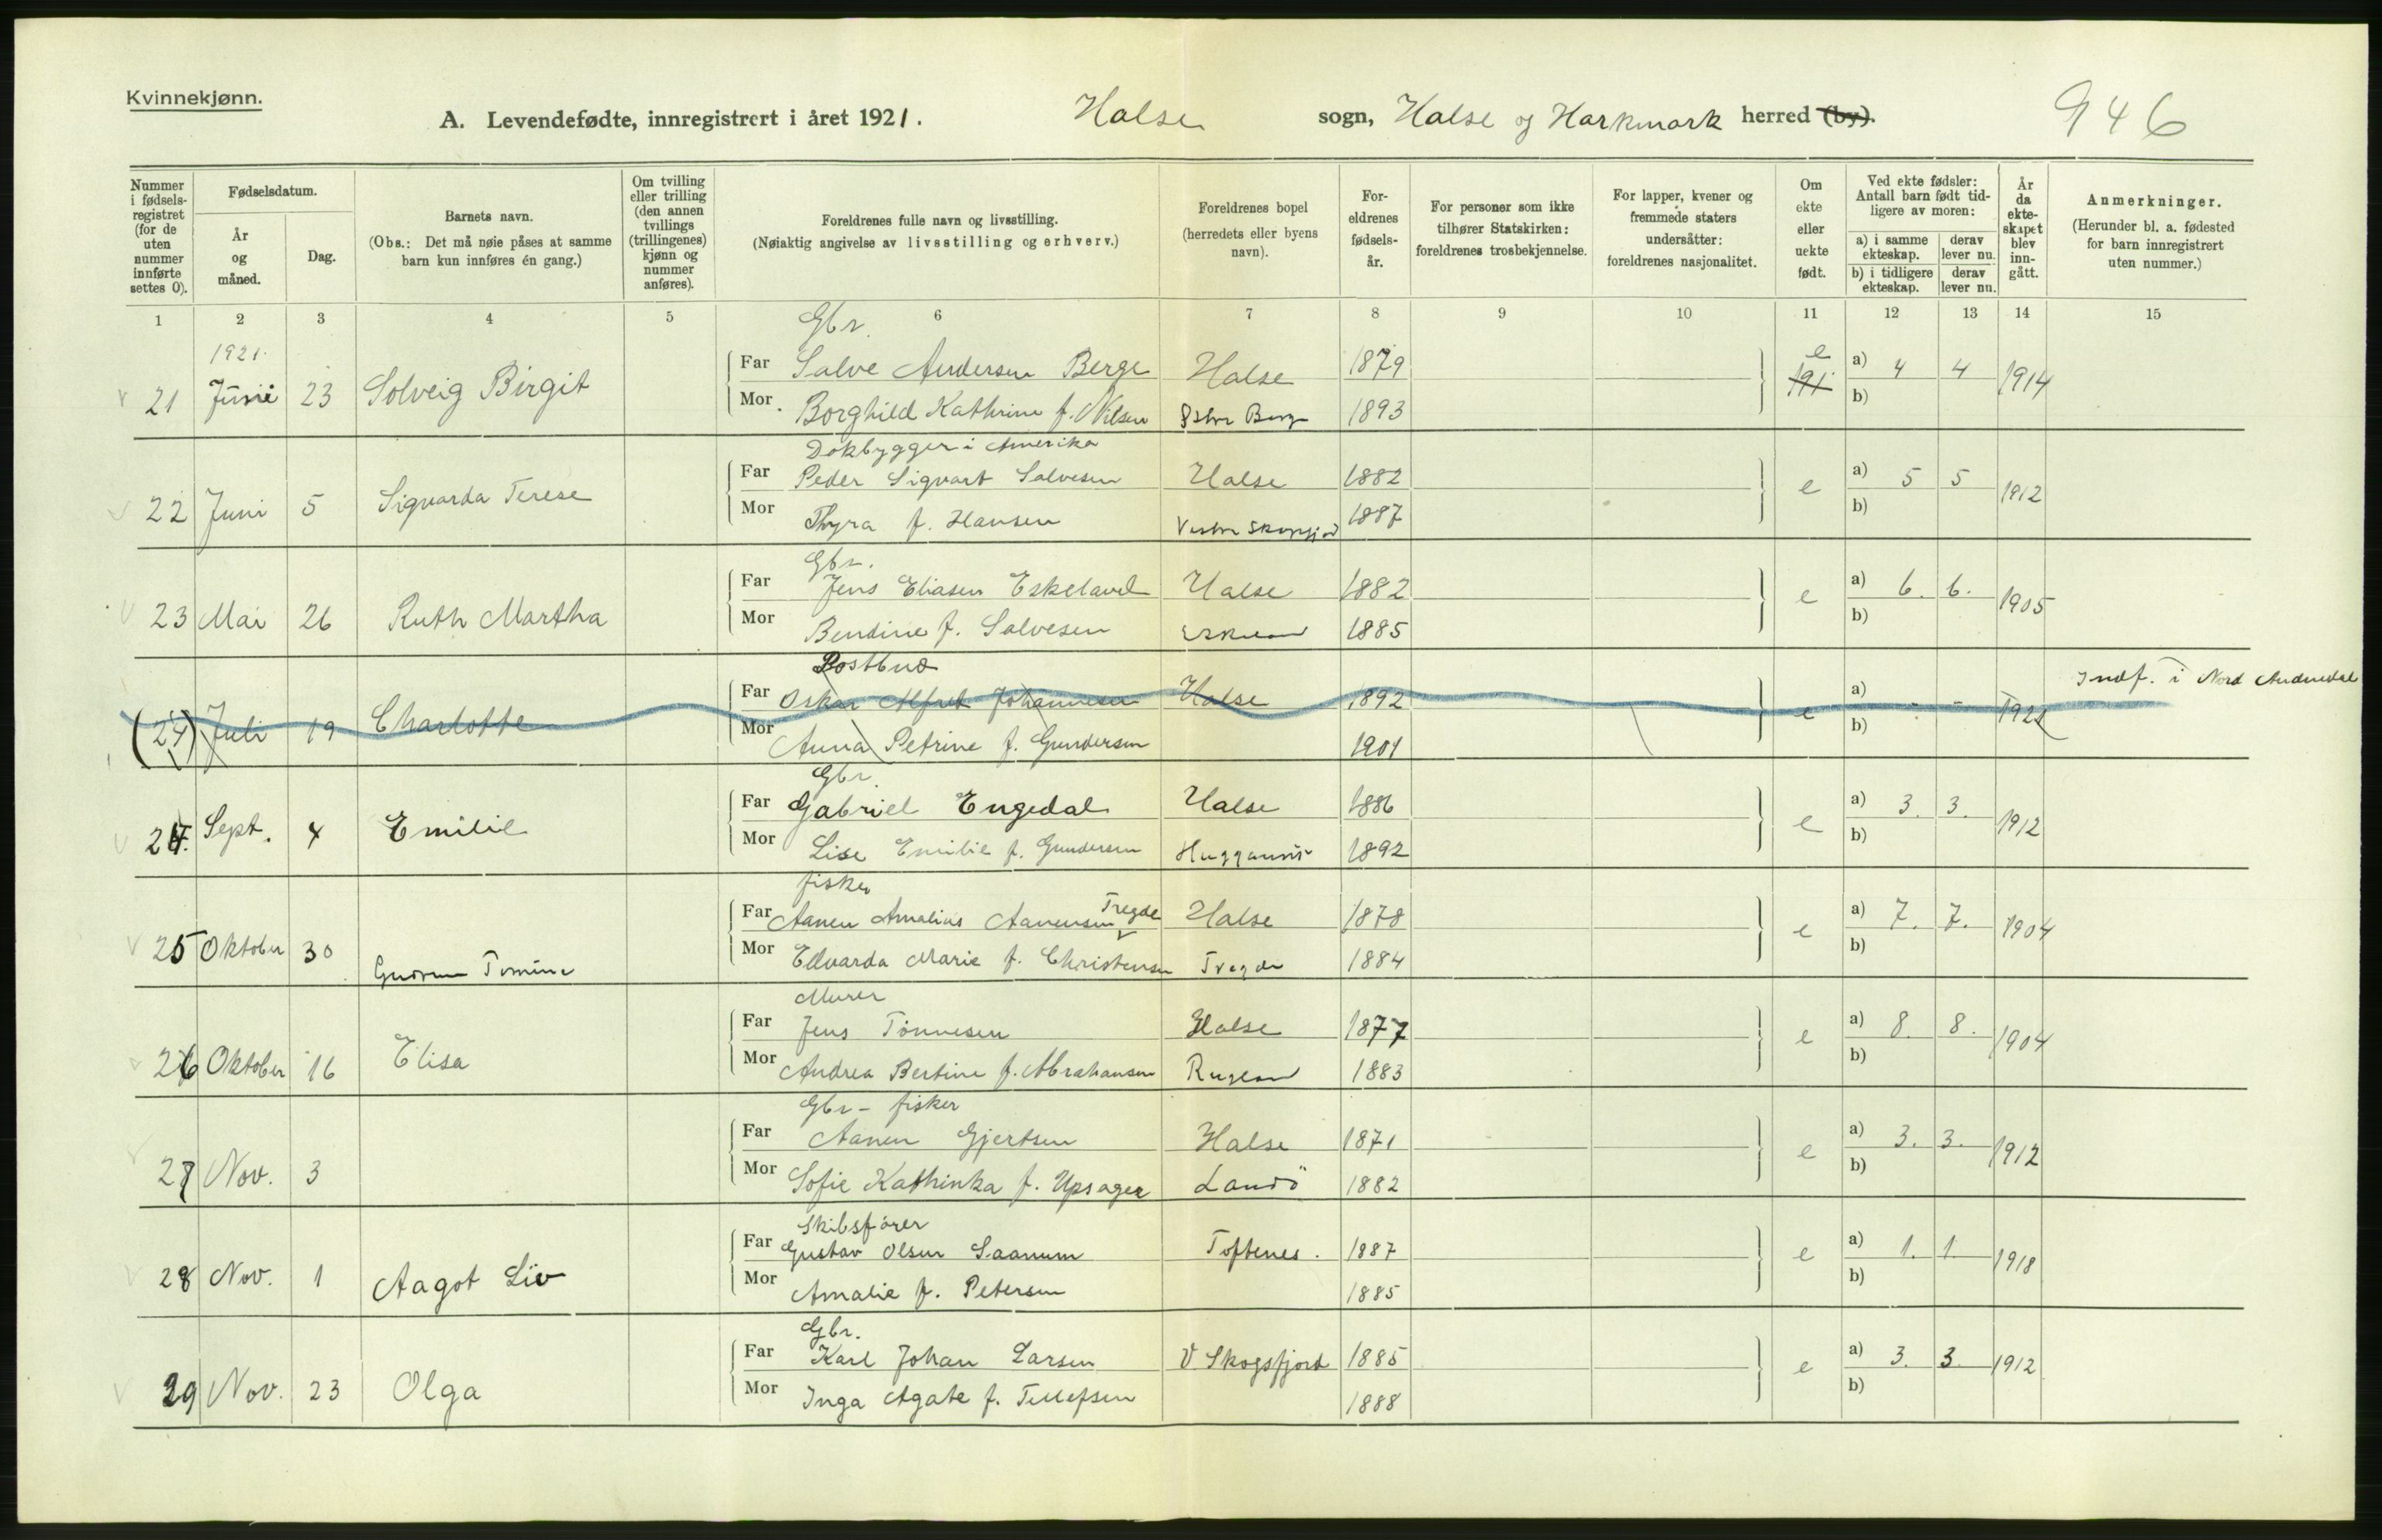 Kvinnekjønn.
A. Levendefødte, innregistrert i året 1921. Halse sogn, Halse og Harkmark herred (by).
946
Nummer i fødsels-registret (for de uten nummer innførte settes 0).
Fødselsdatum.
År og måned.
Dag.
Barnets navn.
(Obs.: Det må nøie påses at samme barn kun innføres én gang.)
Om tvilling eller trilling (den annen tvillings (trillingenes) kjønn og nummer anføres).
Foreldrenes fulle navn og livsstilling.
(Nøiaktig angivelse av livsstilling og erhverv.)
Foreldrenes bopel (herredets eller byens navn).
For-eldrenes fødsels-år.
For personer som ikke tilhører Statskirken: foreldrenes trosbekjennelse.
For lapper, kvener og fremmede staters undersåtter: foreldrenes nasjonalitet.
Om ekte eller uekte født.
Ved ekte fødsler: Antall barn født tid-ligere av moren:
a) i samme ekteskap. derav lever nu.
b) i tidligere ekteskap. derav lever nu.
År da ekte-skapet blev inn-gått.
Anmerkninger.
(Herunder bl. a. fødested for barn innregistrert uten nummer.)
1 2 3 4 5 6 7 8 9 10 11 12 13 14 15
1921. Gbr.
21 Juni 23 Solveig Birgit Far Salve Andersen Berge Halse 1879 e a) 4 4 1914
Mor Borghild Kathrine f. Nilsen Berge 1893 b)
Dokbygger i Amerika
22 Juni 5 Sigvarda Terese Far Peder Sigvart Salvesen Halse 1882 e a) 5 5 1912
Mor Thyra f. Hansen 1887 b)
Gbr.
23 Mai 26 Ruth Martha Far Jens Eliasen Eskeland Halse 1882 e a) 6. 6. 1905
Mor Bendine f. Salvesen Eskeland 1885 b)
Postbud
(24) Juli 19 Charlotte Far Oskar Alfred Johannesen Halse 1892 e a) - - 1921 Indf. i Nord Audnedal
Mor Anna Petrine f. Gundersen 1901 b)
Gbr.
24. Sept. 4 Emilie Far Gabriel Engedal Halse 1886 e a) 3. 3. 1912
Mor Lise Emilie f. Gundersen 1892 b)
fisker
25 Oktober 30 Gudrun Tomine Far Aanen Amalius Aanensen Tregde Halse 1878 e a) 7. 7. 1904
Mor Edvarda Marie f. Christensen Tregde 1884 b)
Murer
26 Oktober 16 Elisa Far Jens Tönnesen Halse 1877 e a) 8. 8. 1904
Mor Andrea Bertine f. Abrahamsen 1883 b)
Gbr - fisker
27 Nov. 3 Far Aanen Gjertsen Halse 1871 e a) 3. 3. 1912
Mor Sofie Kathinka f. Upsager Landö 1882 b)
Skibsfører
28 Nov. 1 Aagot Liv Far Gustav Olsen Saanum Toftenes. 1887 e a) 1. 1. 1918
Mor Amalie f. Petersen 1885 b)
Gbr.
29 Nov. 23 Olga Far Karl Johan Larsen V Skogsfjord 1885 e a) 3. 3 1912
Mor Inga Agate f. Tellefsen 1888 b)